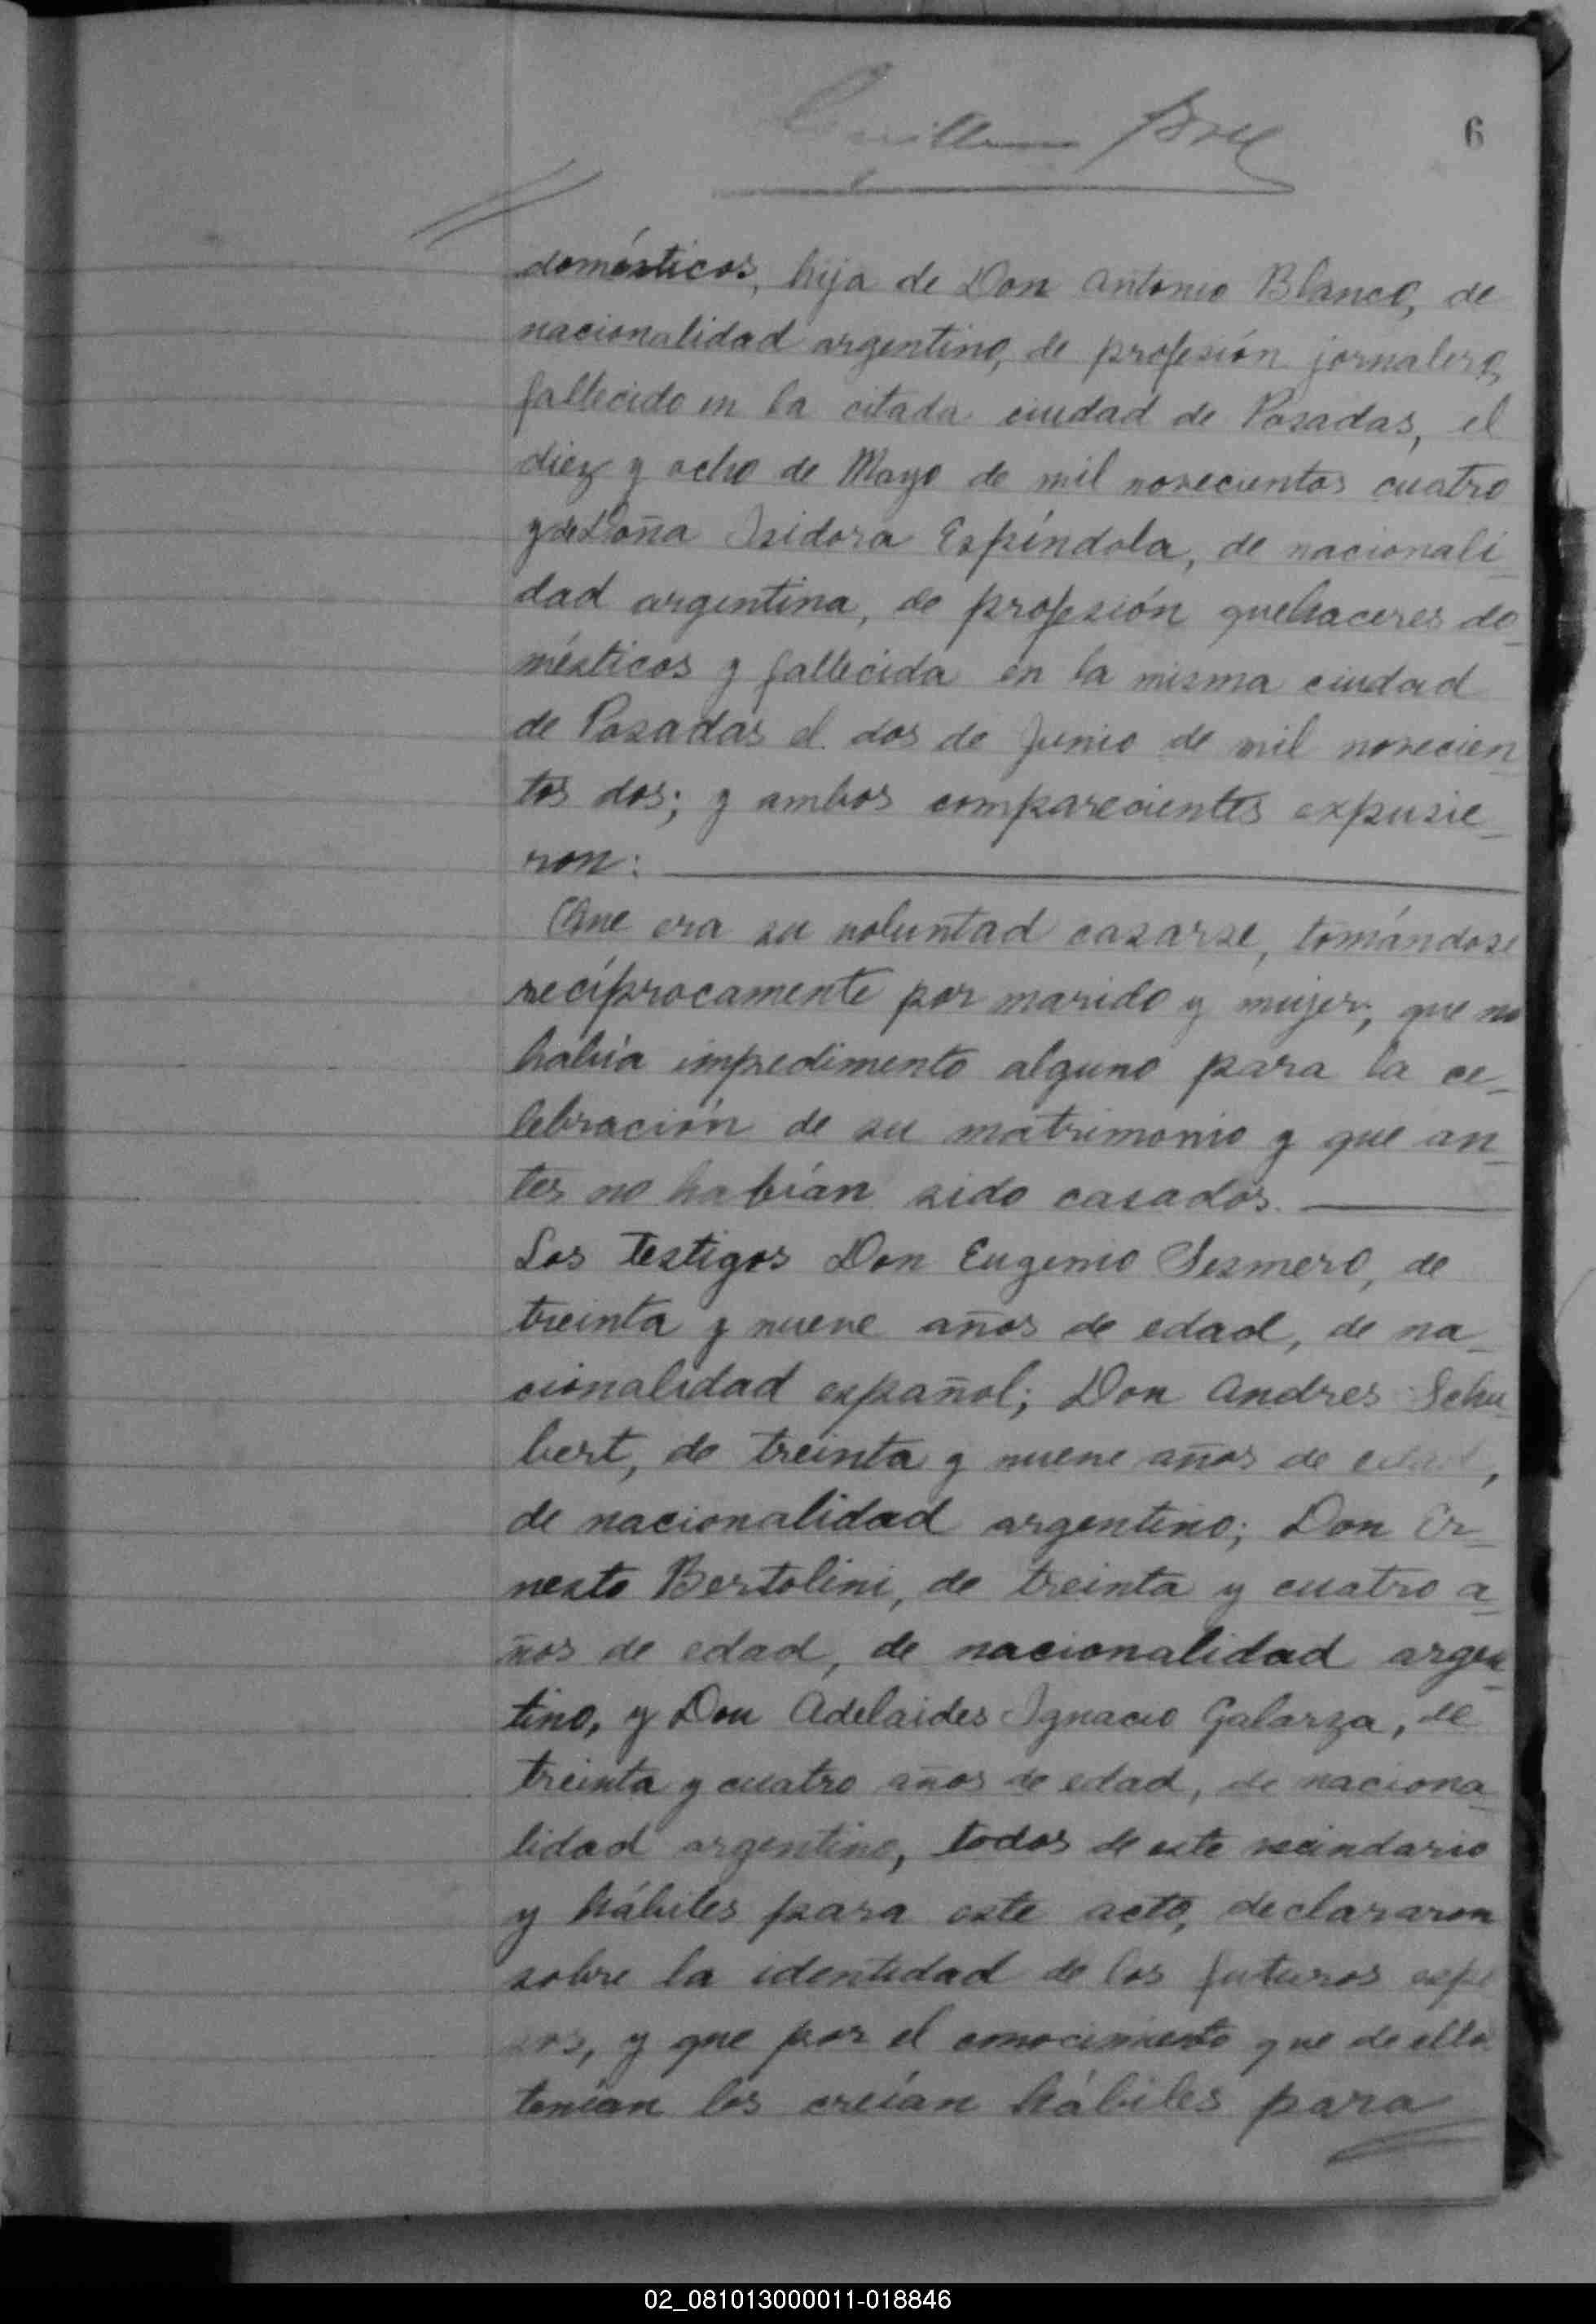 6
domésticos, hija de Don Antonio Blanco, de
nacionalidad argentino, de profesión jornalero,
fallecido en la citada ciudad de Posadas, el
diez y ocho de Mayo de mil novecientos cuatro
y de Doña Isidora Espíndola, de nacionali_
dad argentina, de profesión quehaceres do_
mésticos y fallecida en la misma ciudad
de Posadas el dos de Junio de mil novecien_
tos dos; y ambos comparecientes expusie_
ron:
Que era su voluntad casarse, tomándose
recíprocamente por marido y mujer; que no
había impedimento alguno para la ce_
lebración de su matrimonio y que an_
tes no habían sido casados.
Los testigos Don Eugenio Sesmero, de
treinta y nueve años de edad, de na_
cionalidad español; Don Andres Schu_
bert, de treinta y nueve años de edad,
de nacionalidad argentino; Don Er_
nesto Bertolini, de treinta y cuatro a_
ños de edad, de nacionalidad argen_
tino, y Don Adelaides Ignacio Galarza, de
treinta y cuatro años de edad, de naciona_
lidad argentino, todos de este vecindario
y hábiles para este acto, declararon
sobre la identidad de los futuros espo
sos, y que por el conocimiento que de ellos
tenían los creían hábiles para
02_081013000011-018846